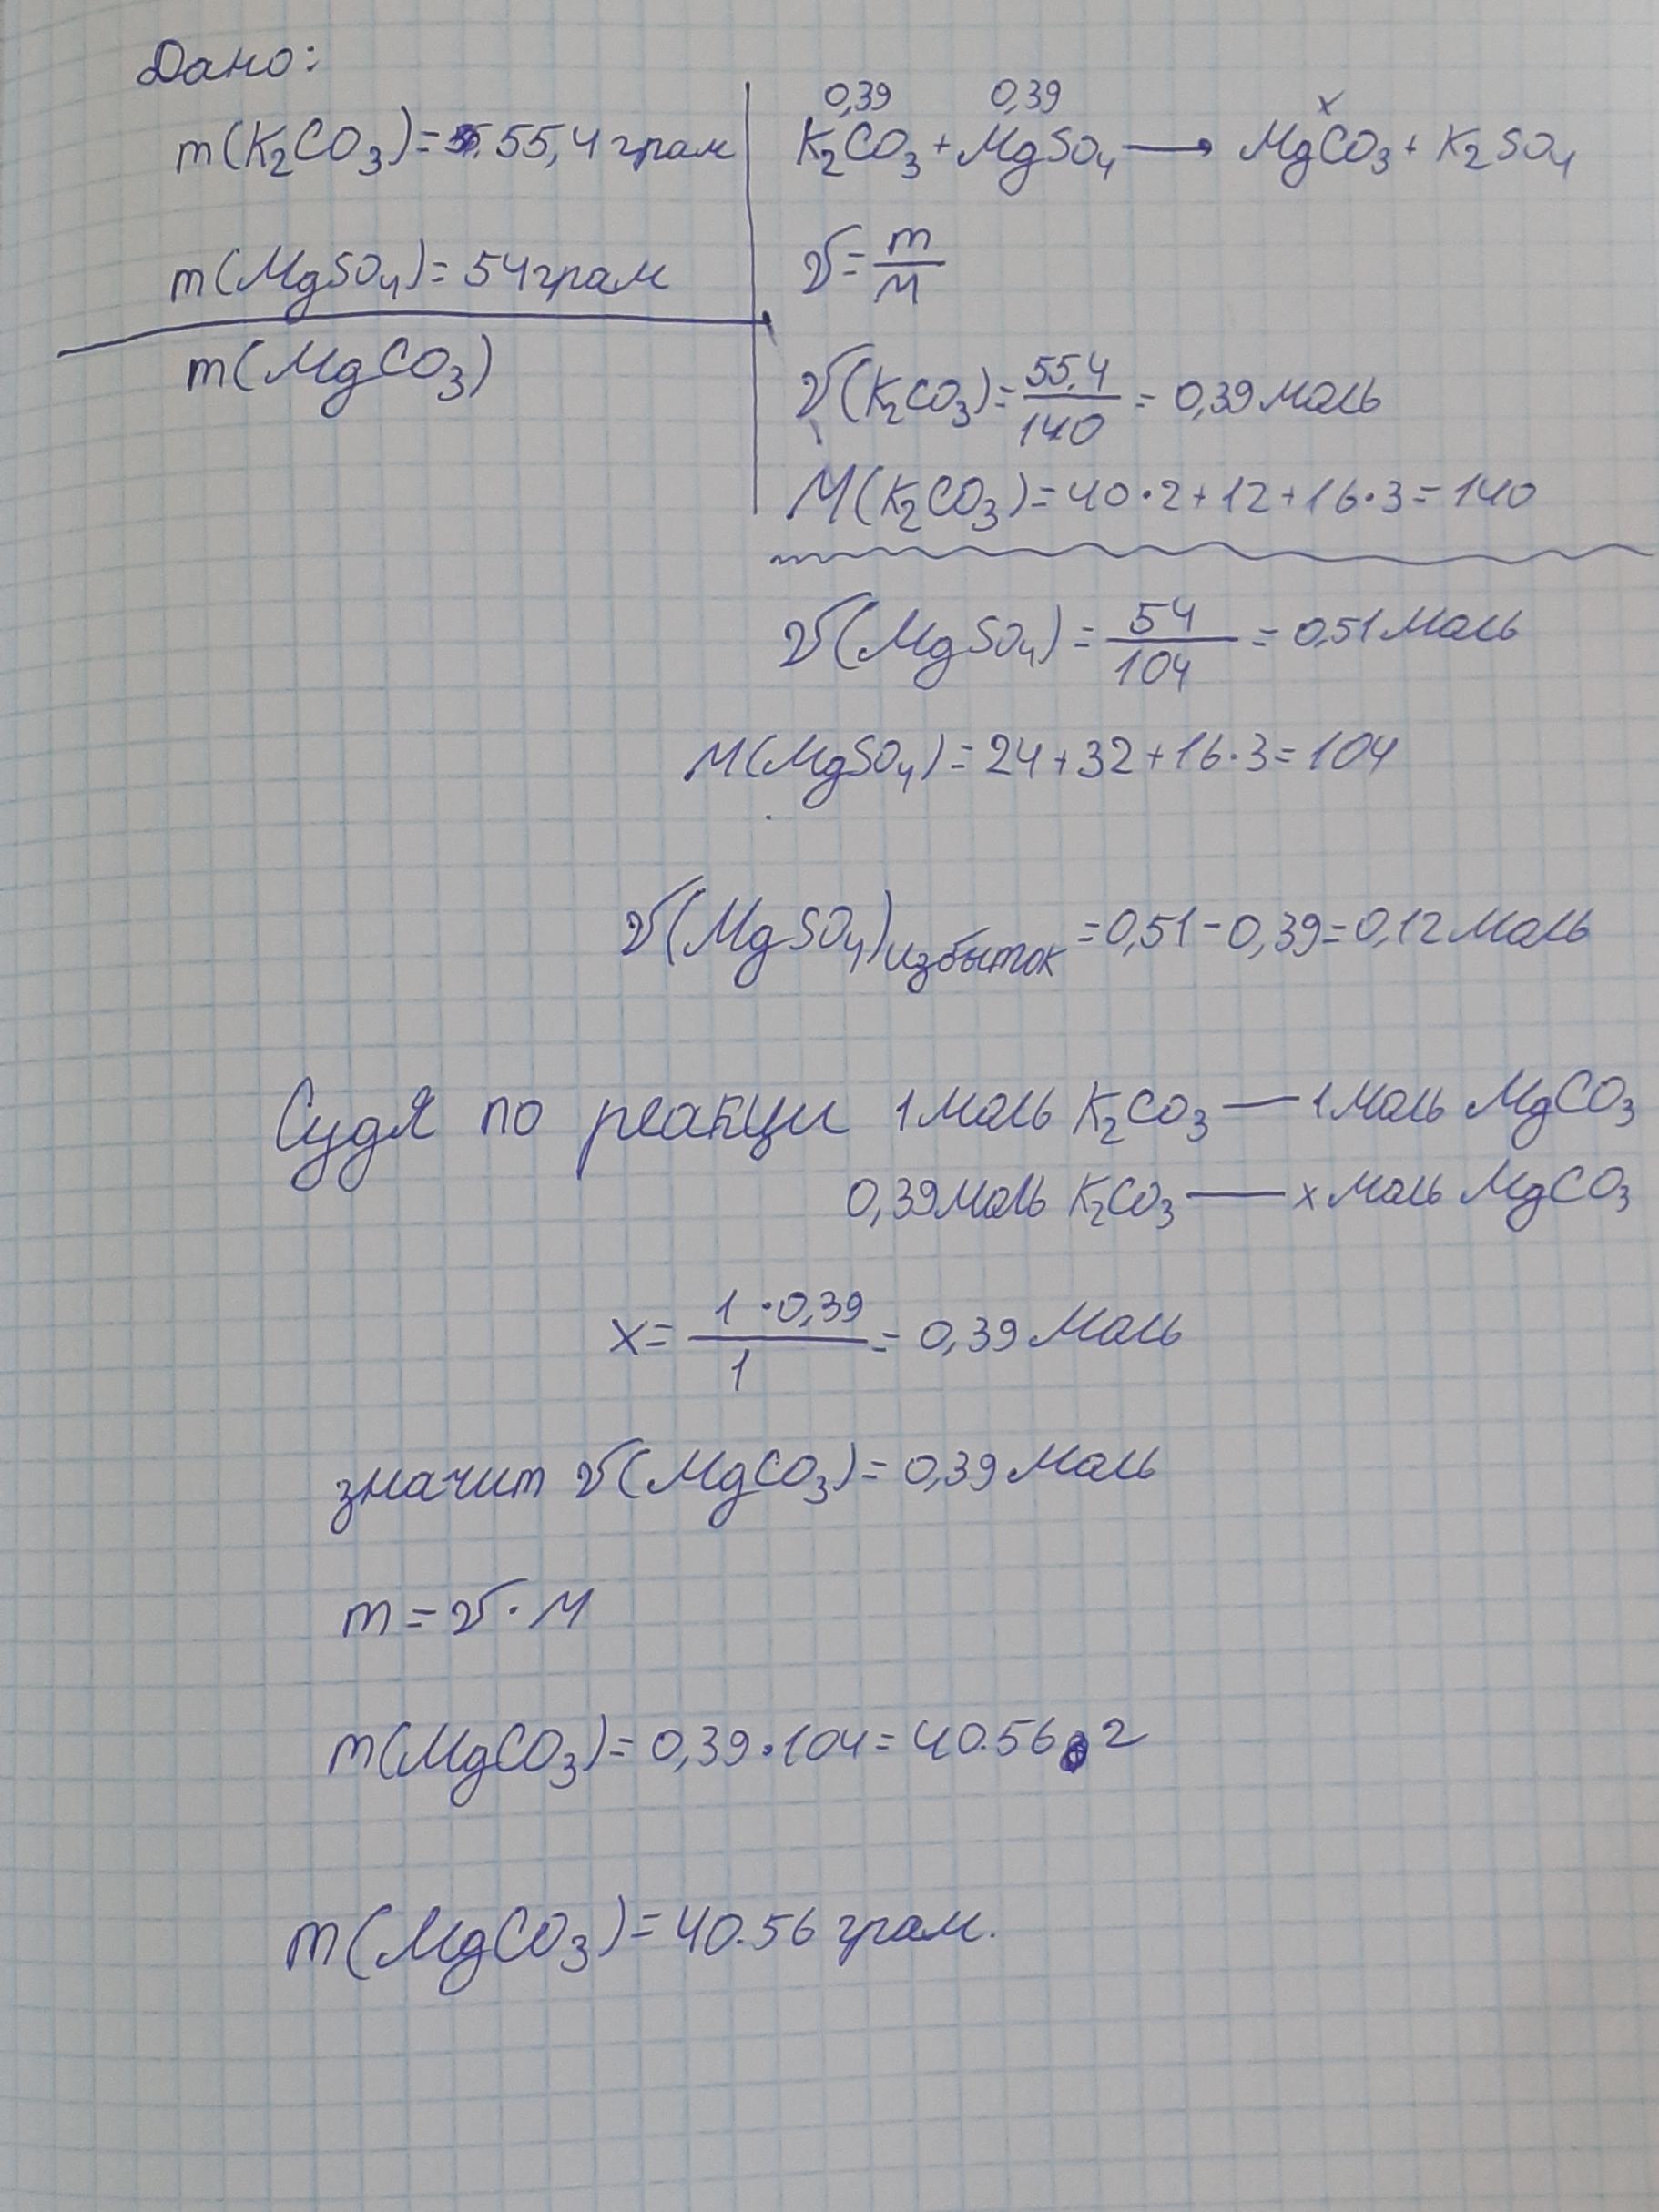 Дано:
m(K₂CO₃)= 55,4 грам
m(MgSO₄)= 54 грам
m(MgCO₃)
0,39 0,39 x
K₂CO₃ + MgSO₄ → MgCO₃ + K₂SO₄
ν = m/M
ν(K₂CO₃) = 55,4/140 = 0,39 моль
M(K₂CO₃) = 40·2+12+16·3 = 140
ν(MgSO₄) = 54/104 = 0,51 моль
M(MgSO₄) = 24+32+16·3 = 104
ν(MgSO₄)избыток = 0,51 - 0,39 = 0,12 моль
Судя по реакци 1 моль K₂CO₃ — 1 моль MgCO₃
0,39 моль K₂CO₃ — x моль MgCO₃
x = 1·0,39/1 = 0,39 моль
значит ν(MgCO₃) = 0,39 моль
m = ν·M
m(MgCO₃) = 0,39·104 = 40.56 г
m(MgCO₃) = 40.56 грам.